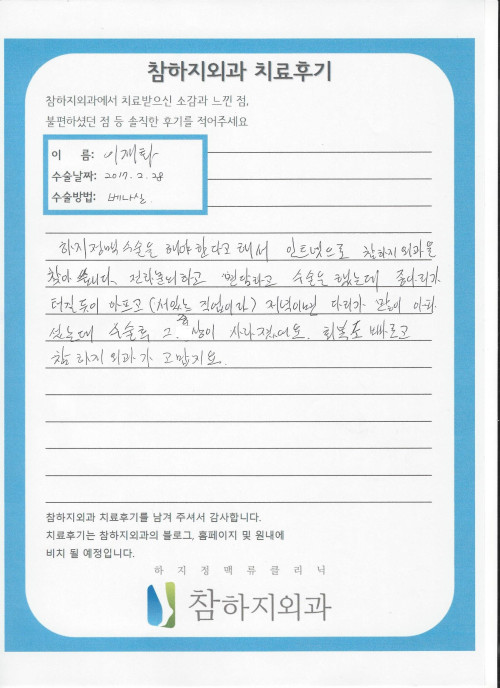 참하지외과 치료후기
참하지외과에서 치료받으신 소감과 느낀 점,
불편하셨던 점 등 솔직한 후기를 적어주세요
이 름: 이재화
수술날짜: 2017. 2. 28
수술방법: 베나실.
하지정맥수술을 해야한다고 해서 인트넷으로 참하지외과을
찾아 습니다. 전화문의하고 면담하고 수술을 했는데 종다리가
터질듯이 아프고 (서있는 직업이라) 저녁이면 다리가 많이 아파
섰는데 수술후 그. 증상이 사라졌어요. 회복도 빠르고
참하지외과가 고맙지요.
참하지외과 치료후기를 남겨 주셔서 감사합니다.
치료후기는 참하지외과의 블로그, 홈페이지 및 원내에
비치 될 예정입니다.
하지정맥류클리닉
참하지외과